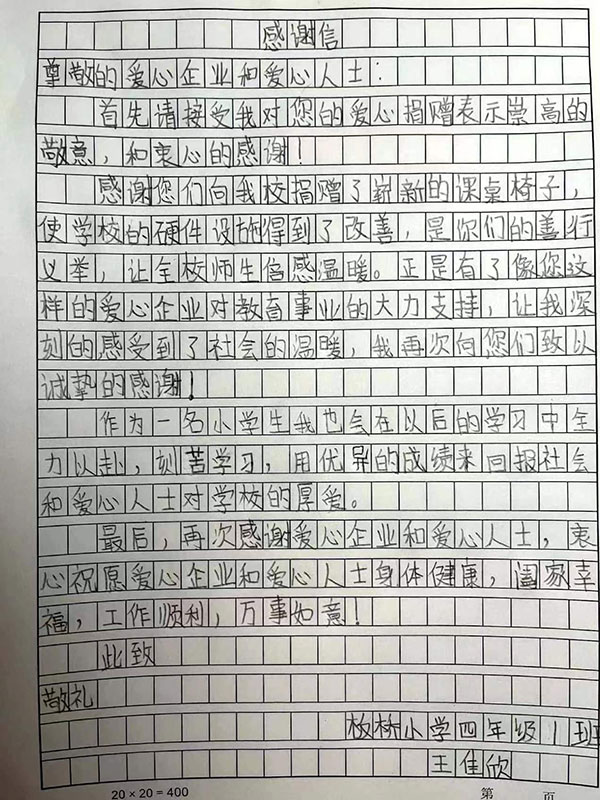 感谢信
尊敬的爱心企业和爱心人士:
首先请接受我对您的爱心捐赠表示崇高的
敬意，和衷心的感谢！
感谢您们向我校捐赠了崭新的课桌椅子，
使学校的硬件设施得到了改善，是你们的善行
义举，让全校师生倍感温暖。正是有了像您这
样的爱心企业对教育事业的大力支持，让我深
刻的感受到了社会的温暖，我再次向您们致以
诚挚的感谢！
作为一名小学生我也会在以后的学习中全
力以赴，刻苦学习，用优异的成绩来回报社会
和爱心人士对学校的厚爱。
最后，再次感谢爱心企业和爱心人士，衷
心祝愿爱心企业和爱心人士身体健康，阖家幸
福，工作顺利，万事如意！
此致
敬礼
板桥小学四年级1班
王佳欣
20×20=400 第 页